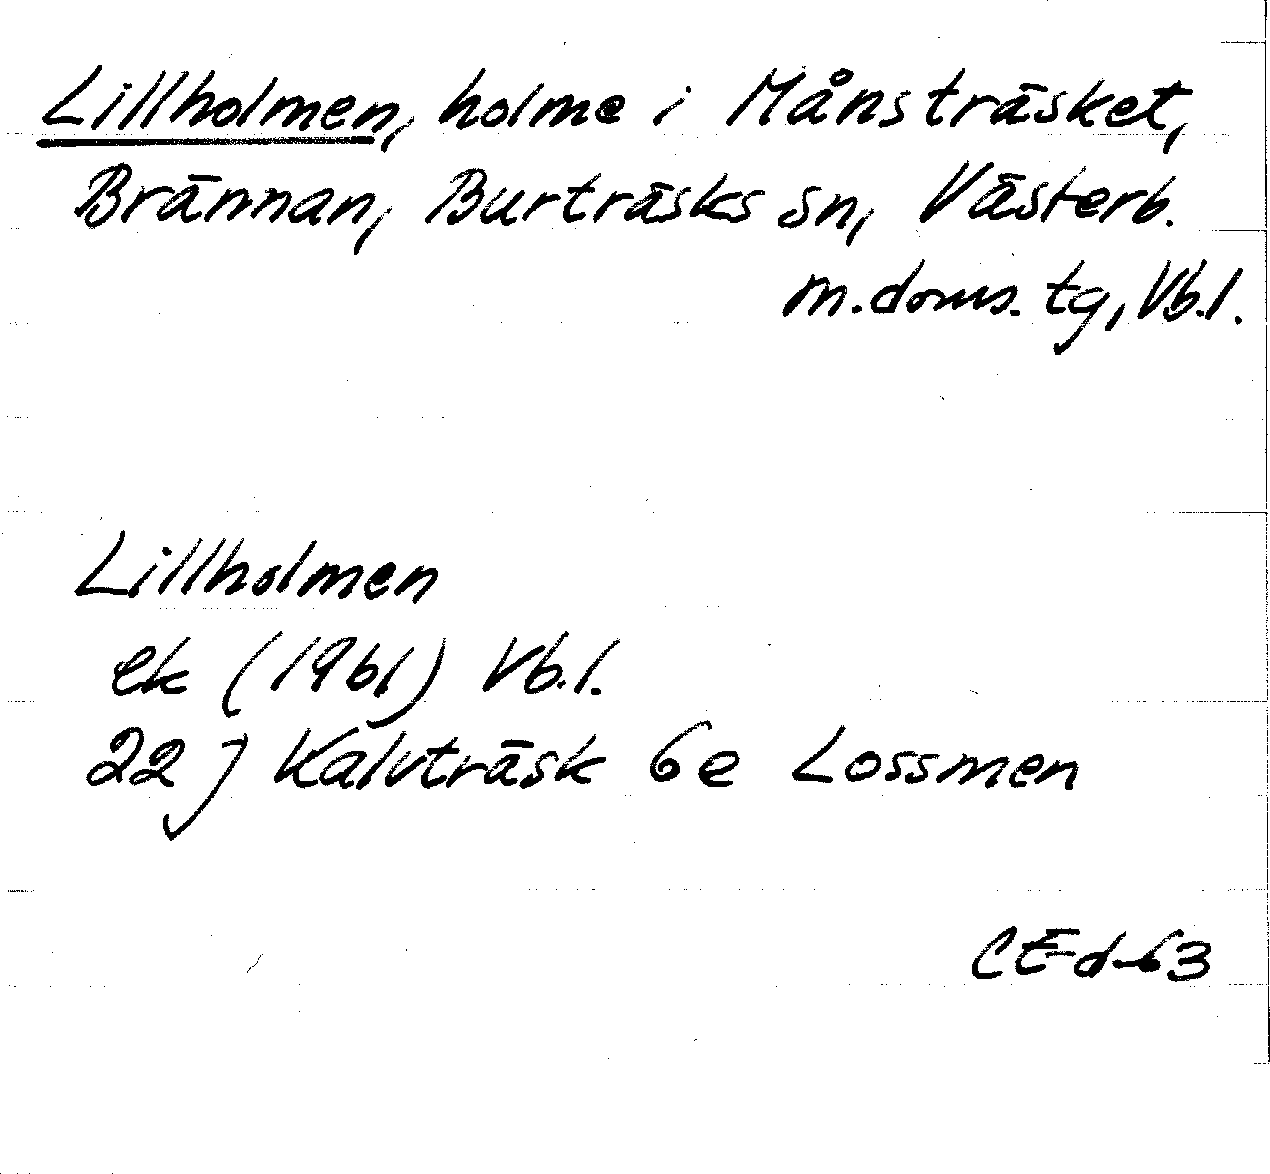 Lillholmen, holme i Månsträsket,
Brännan, Burträsks sn, Västerb.
m. doms. tg, Vb. l.
Lillholmen
ek (1961) Vb. l.
22 J Kalvträsk 6e Lossmen
CEd-63